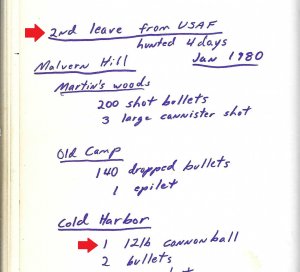 2nd leave from USAF
hunted 4 days
Malvern Hill Jan 1980
Martin's woods
200 shot bullets
3 large cannister shot
Old Camp
140 dropped bullets
1 epilet
Cold Harbor
1 12lb cannonball
2 bullets